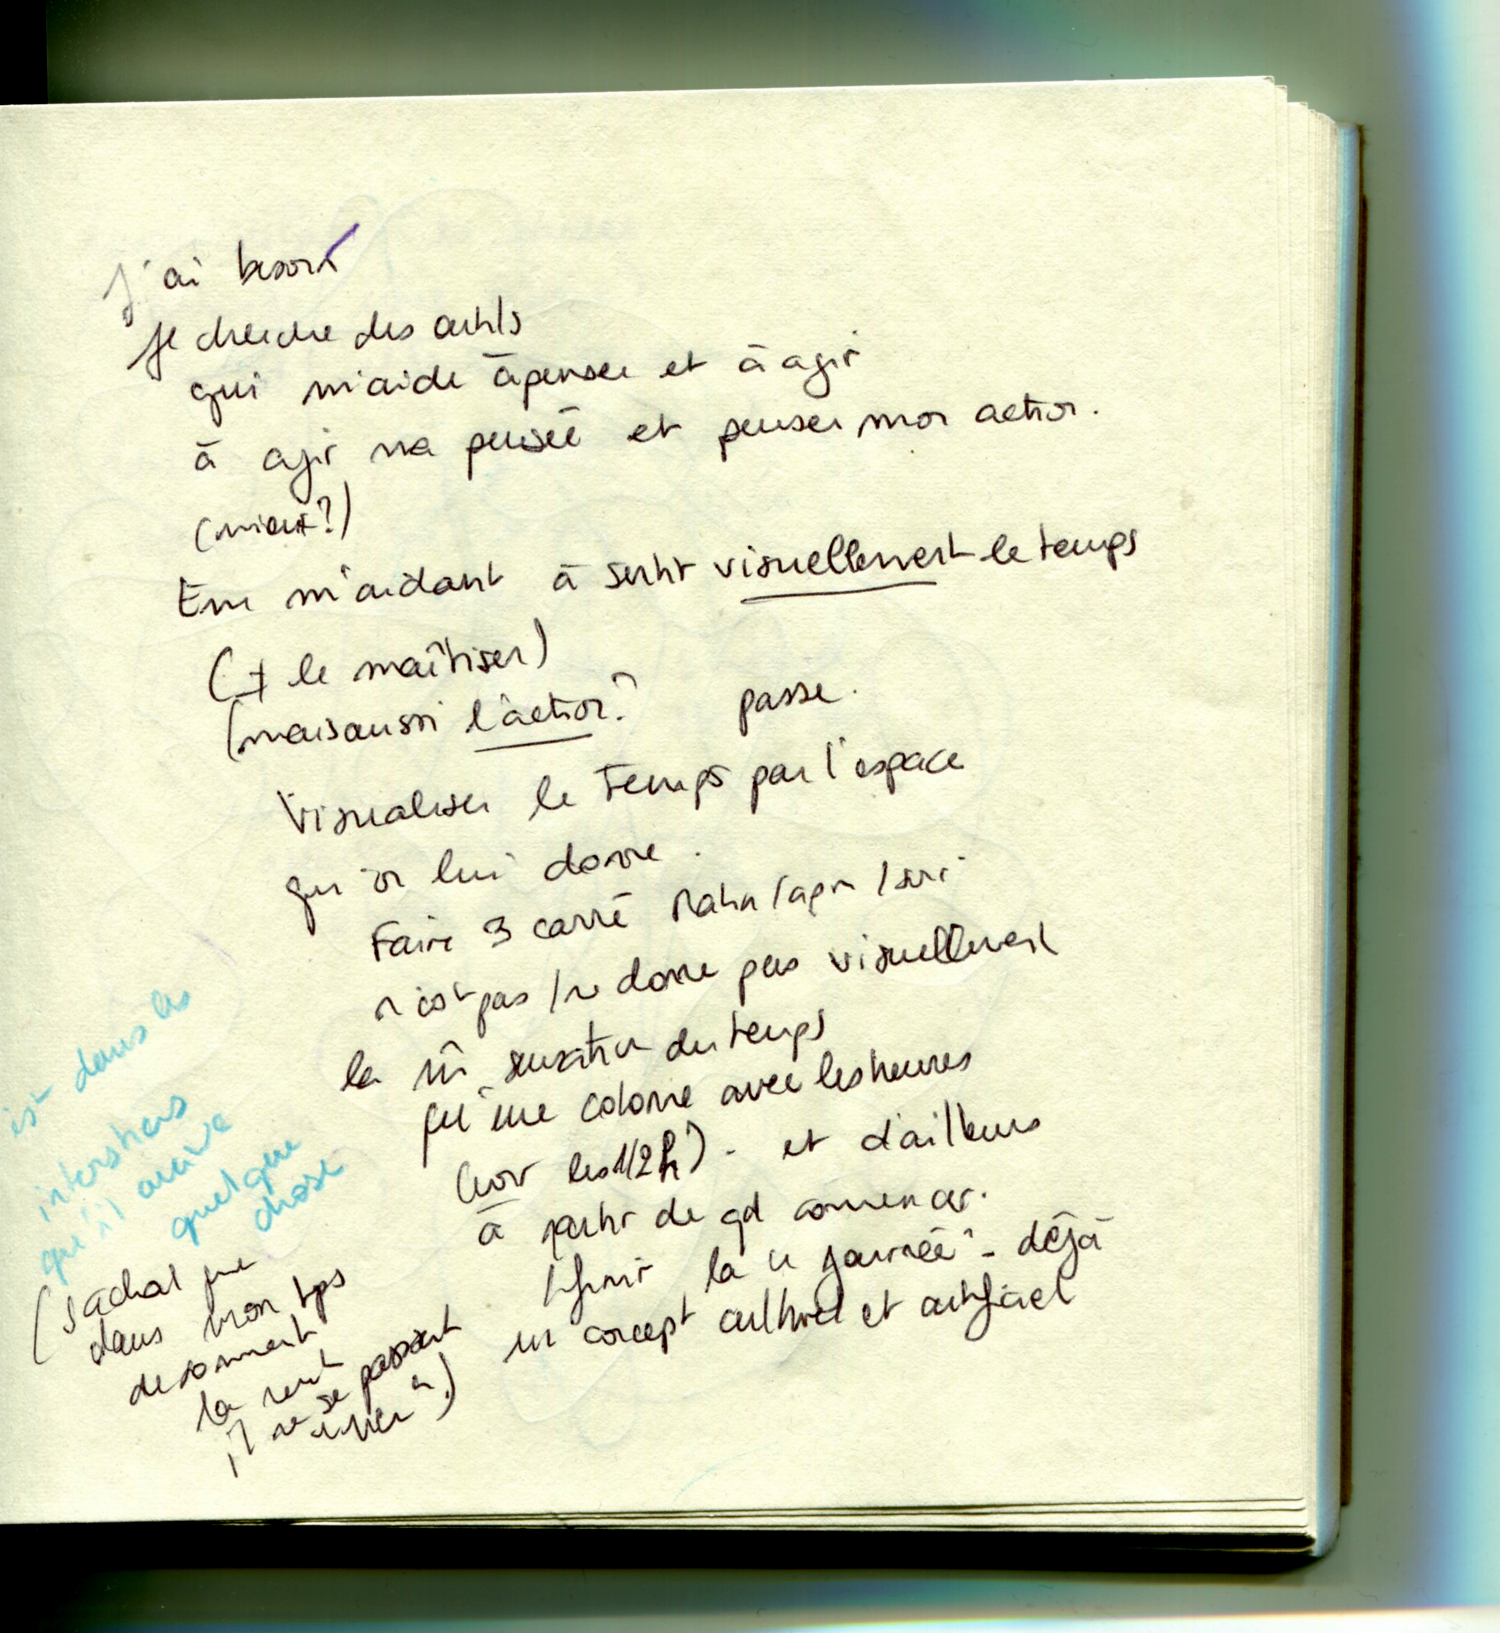 J'ai besoin
Je cherche des outils
qui m'aide à penser et à agir
à agir ma pensée et penser mon action.
(mieux?)
En m'aidant à sentir visuellement le temps
(+ le maîtriser)
(mais aussi l'action? passe.
Visualiser le temps par l'espace
qu'on lui donne.
Faire 3 carré matin/apm/soir
n'est pas / ne donne pas visuellement
la sensation du temps
qu'une colonne avec les heures
(voir les 1/2h) - et d'ailleurs
à partir de qd commencer.
finir la journée - déjà
un concept culturel et artificiel
(sachant que
dans mon tps
la nuit
il ne se passait
rien)
est dans les
interstices
qu'il arrive
quelque
chose